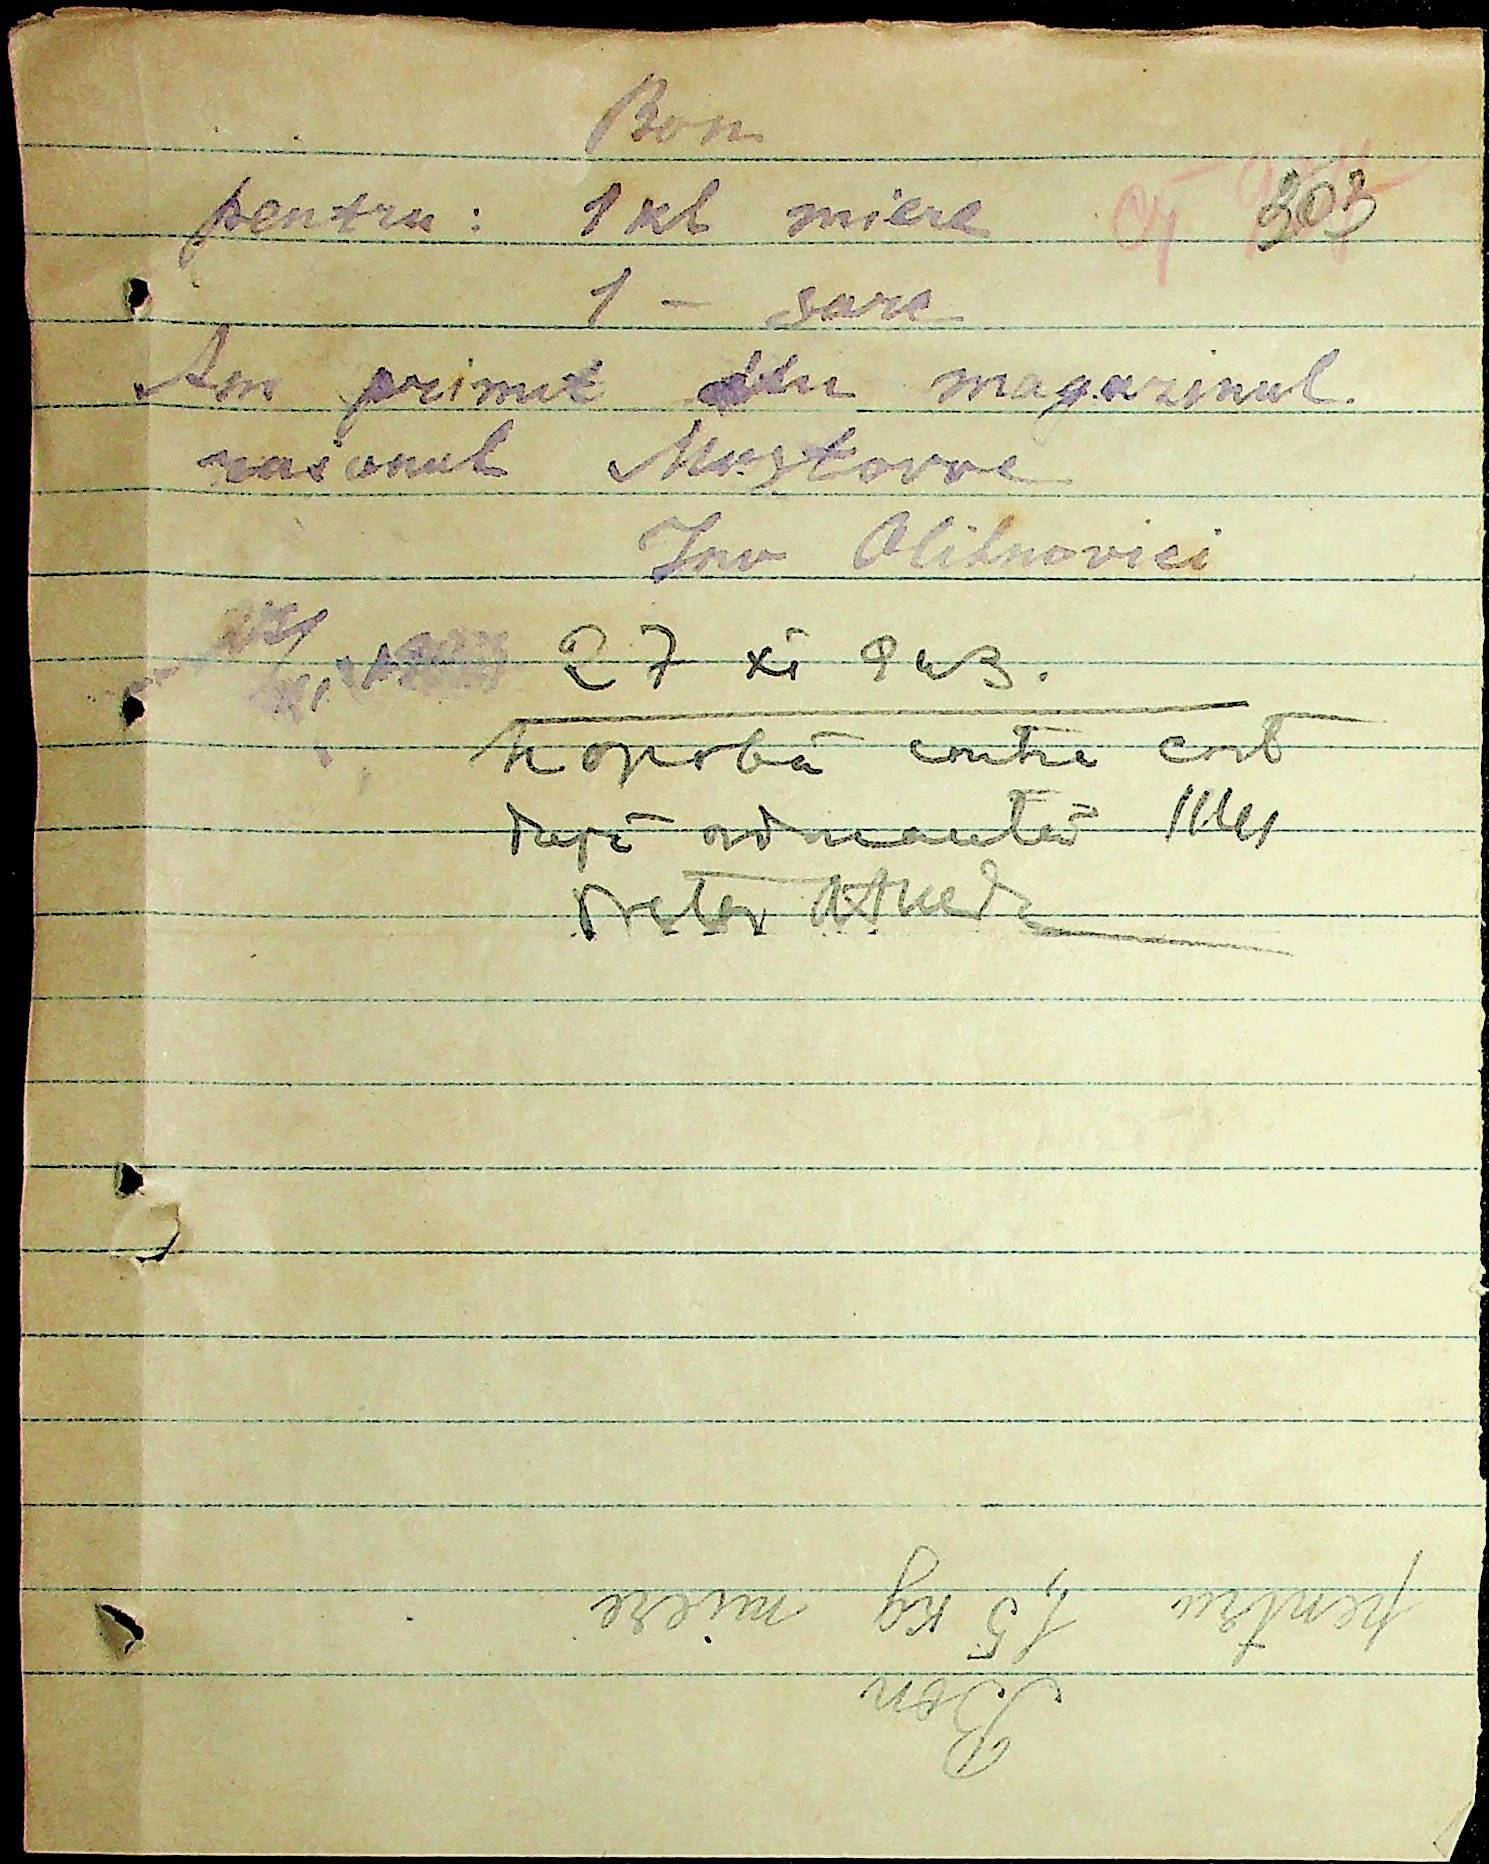 Bon
pentru: 1 kl miere
303
1 – sare
Am primit din magazinul
raionul Mostovoe
Inv Olihnovici
27 XI 943.
Se aprobă contra cost
după ordonanta
Pretor
Bon
pentru 1,5 kg miere